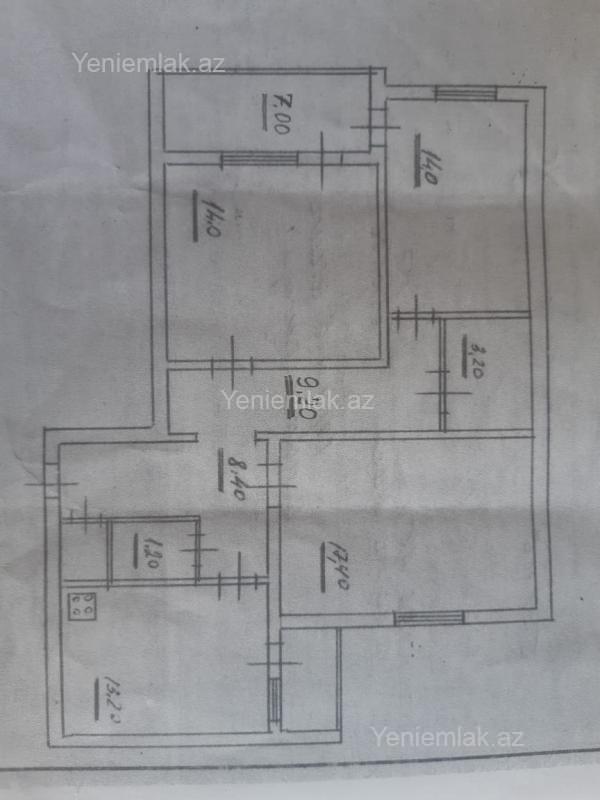 Yeniemlak.az
7.00
14,0
14,0
3,20
9,20
Yeniemlak.az
8.40
1.20
17,40
13,20
Yeniemlak.az